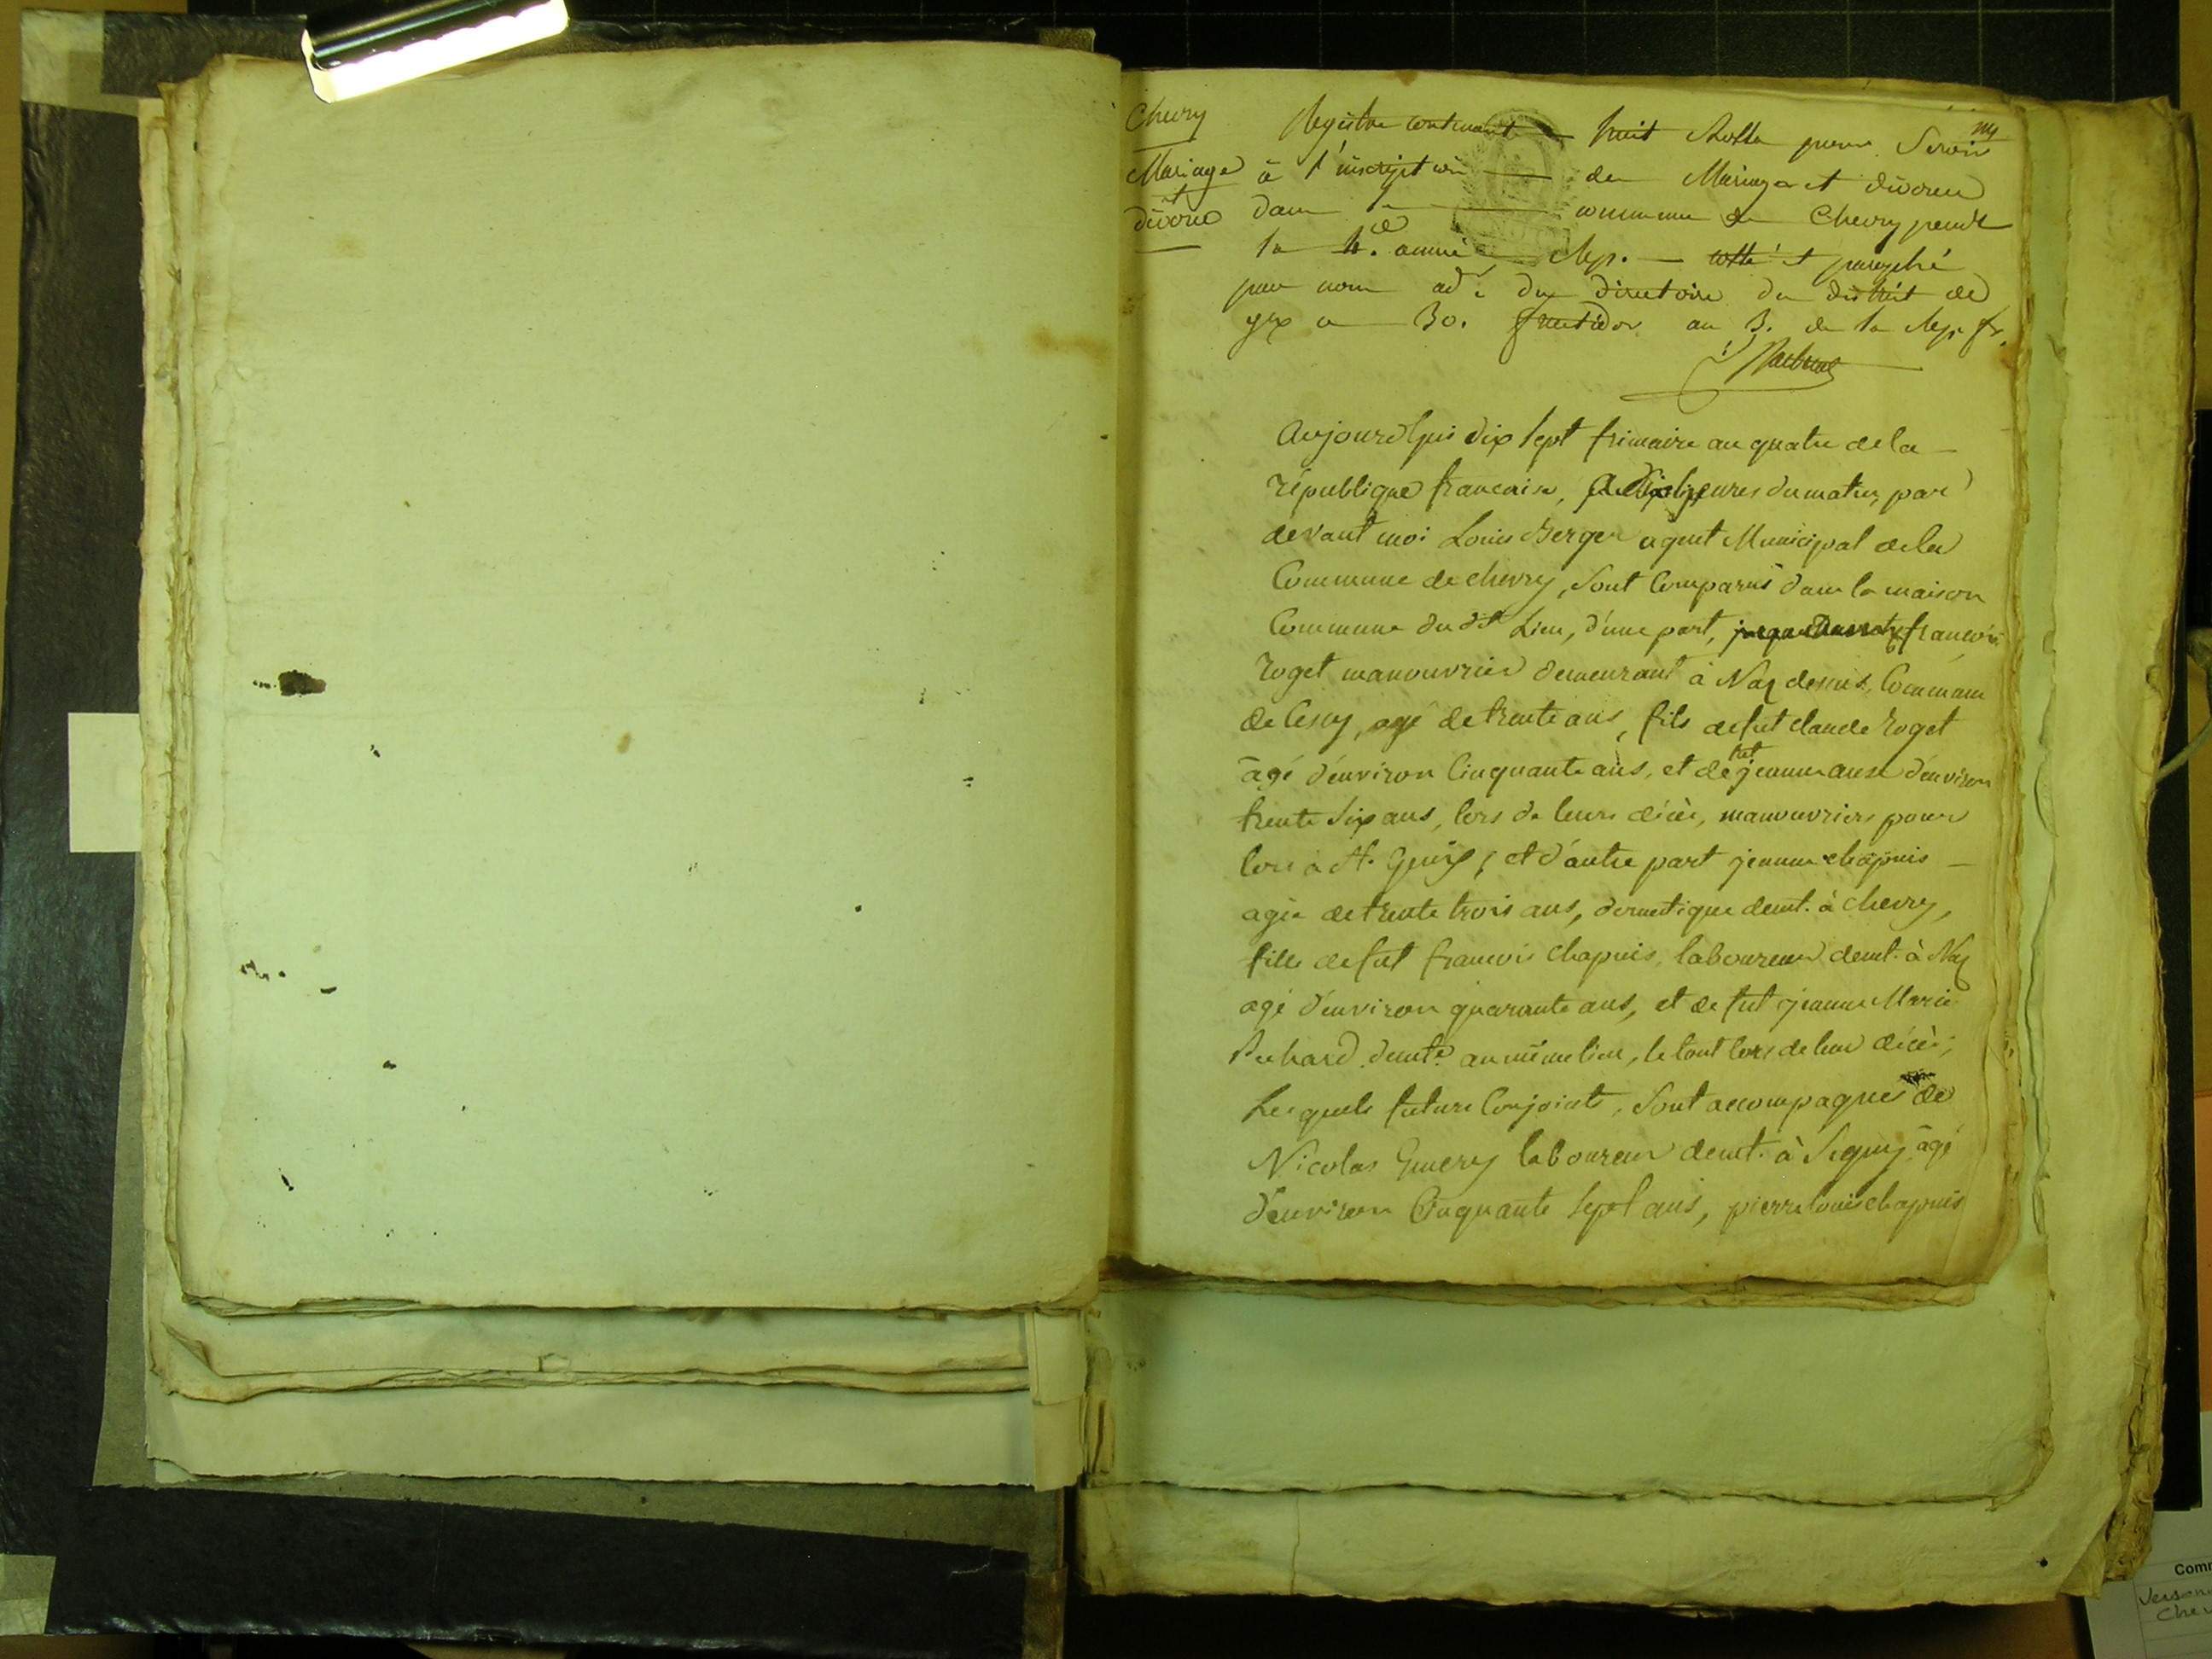 Chevry
Mariage
et
divorce
Registre contenant huit Rolle pour Servir
à l'inscription de Mariage et divorce
dans la commune de Chevry pendt
la 4.e année Rep. cotté et paraphé
par nous ad. du directoire du district de
gex le 30. fructidor an 3. de la Rep. fr.
Aujourd'hui dix sept frimaire an quatre de la
république francaise, a dix heures du matin, par
devant moi Louis Berger agent Municipal de la
Commune de chevry, sont Comparus dans la maison
Commune du dt Lieu, d'une part, francois
roget manouvrier demeurant à Naz dessus, Commune
de Cessy, agé de trente ans, fils de fut claude roget
âgé d'environ Cinquante ans, et de fut jeanne d'environ
trente six ans, lors de leurs décès, manouvriers pour
lors à St. Genis ; et d'autre part jeanne chapuis
agée de trente trois ans, domestique demt. à chevry,
fille de fut francois chapuis, laboureur demt. à Naz
agé d'environ quarante ans, et de fut jeanne Marie
demte. au même lieu, le tout lors de leur décès ;
Lesquels futurs Conjoints, sont accompagnés de
Nicolas laboureur demt. à Segny âgé
d'environ Cinquante sept ans, pierre louis chapuis
Comm
Verson
Chev